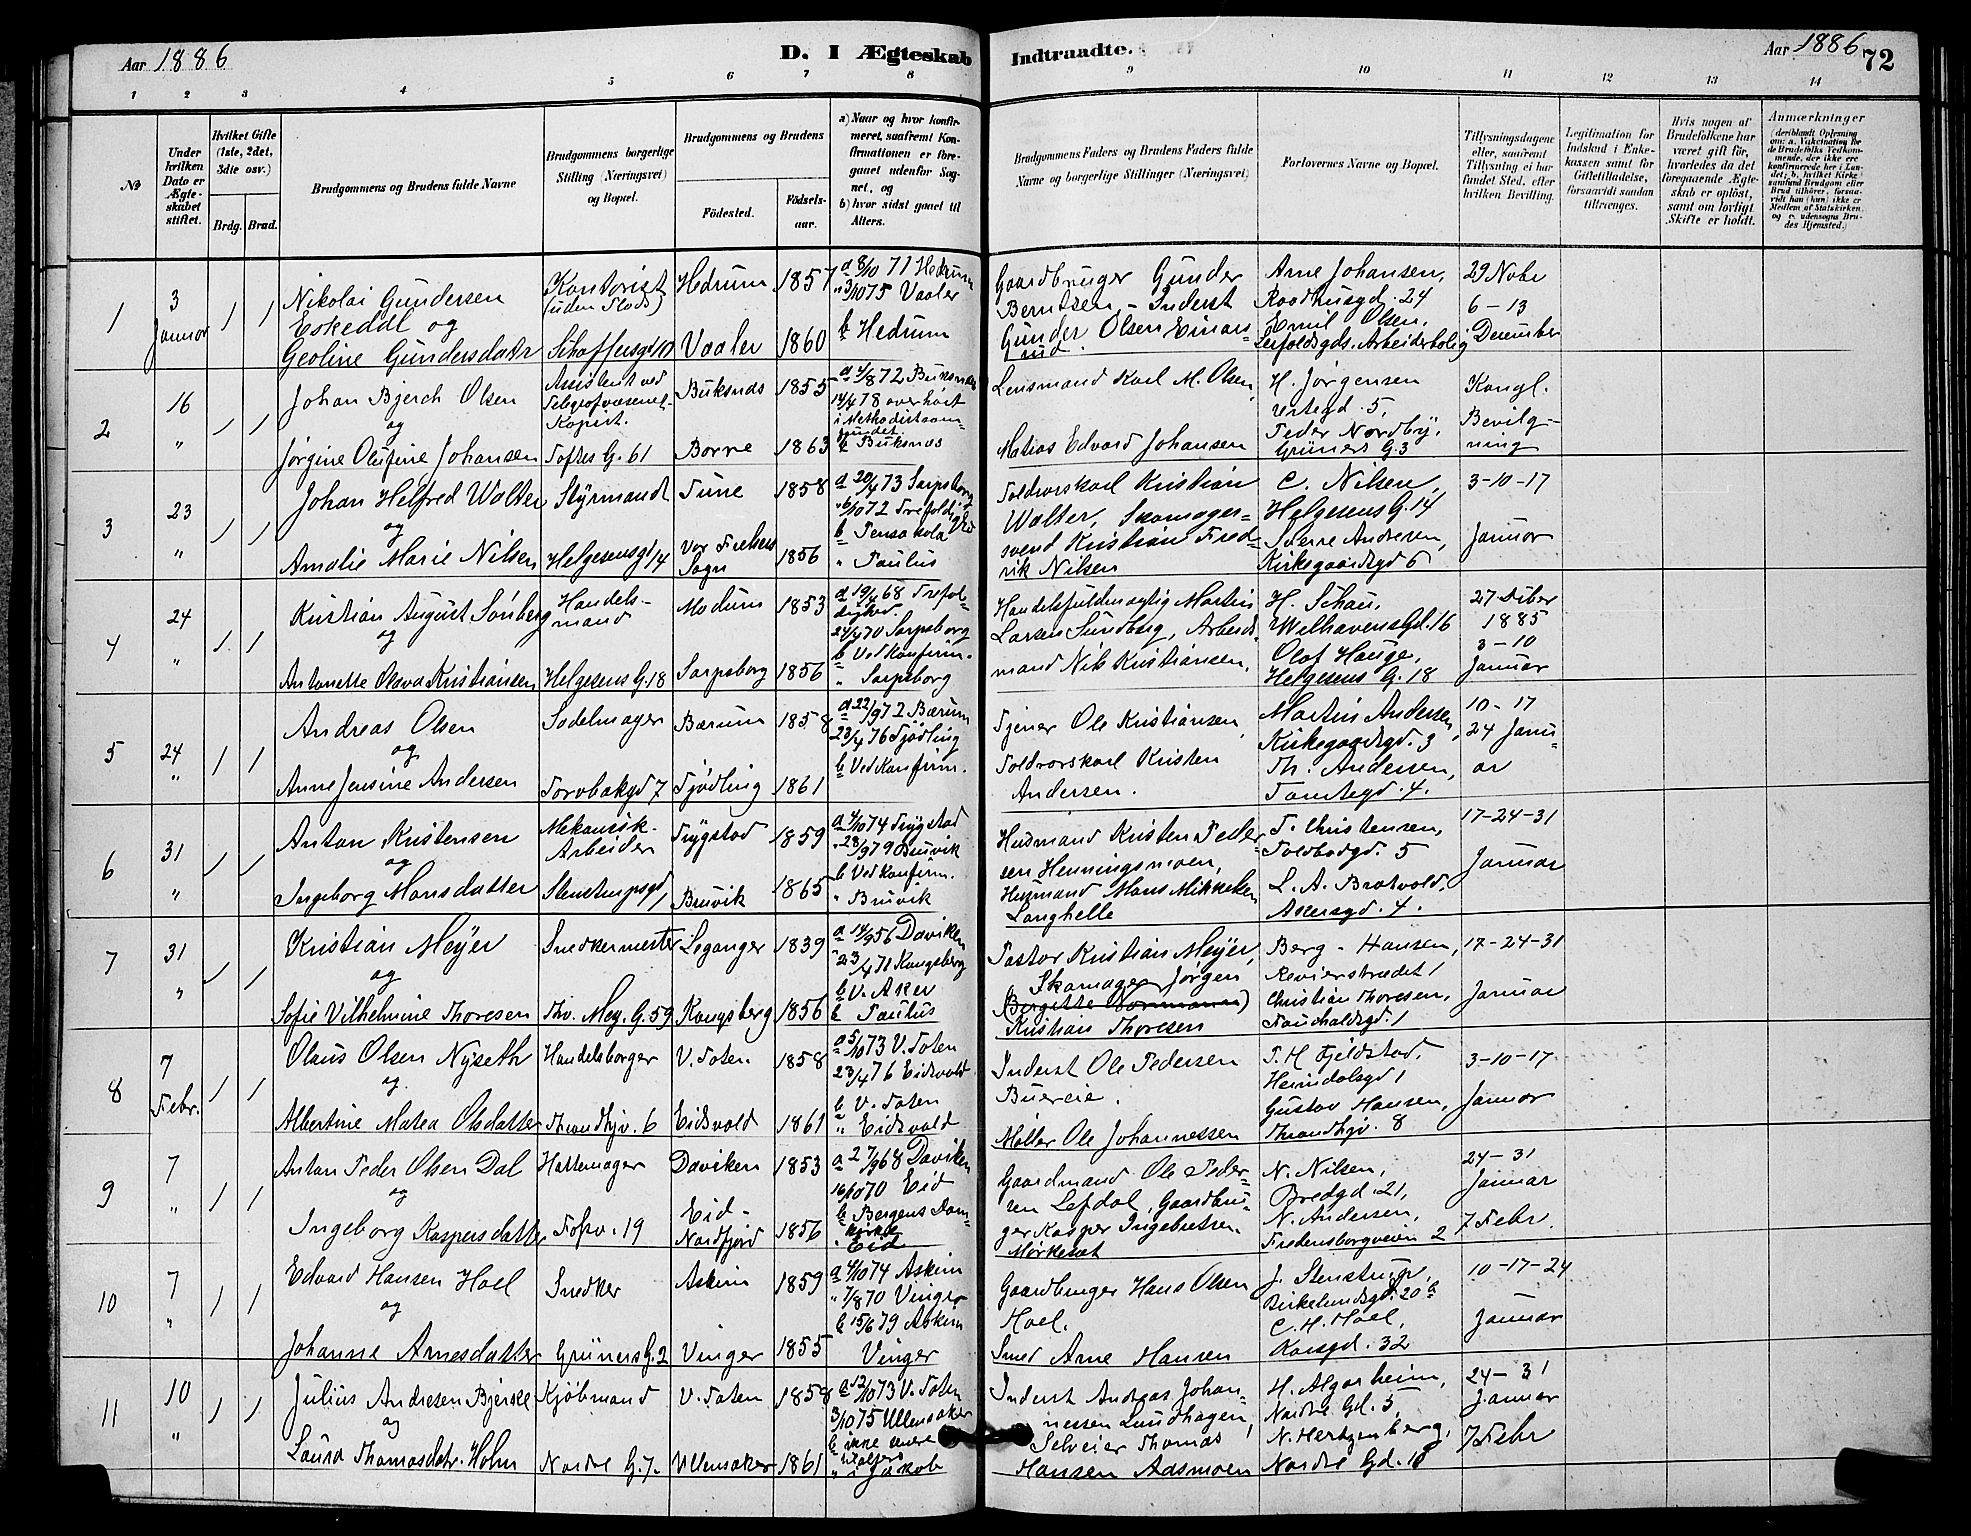 Aar 1886
D. I Ægteskab Indtraadte.
Aar 1886
72
1 2 3 4 5 6 7 8 9 10 11 12 13 14
No
Under hvilken Dato er Ægteskabet stiftet.
Hvilket Gifte (1ste, 2det, 3die osv.)
Brdg. Brud.
Brudgommens og Brudens fulde Navne
Brudgommens borgerlige Stilling (Næringsvei) og Bopæl.
Brudgommens og Brudens
Fødested.
Fødsels-aar.
a) Naar og hvor konfirmeret, saafremt Konfirmationen er foregaaet udenfor Sognet, og
b) hvor sidst gaaet til Alters.
Brudgommens Faders og Brudens Faders fulde Navne og borgerlige Stillinger (Næringsvei)
Forlovernes Navne og Bopæl.
Tillysningsdagene eller, saafremt Tillysning ei har fundet Sted, efter hvilken Bevilling.
Legitimation for Indskud i Enkekassen samt for Giftetilladelse, forsaavidt saadan tiltrænges.
Hvis nogen af Brudefolkene har været gift før, hvorledes da det foregaaende Ægteskab er opløst, samt om lovligt Skifte er holdt.
Anmærkninger
(deriblandt Oplysning om: a. Vakcination for de Brudefolks Vedkommende, der ikke ere konfirmerede her i Landet; b. hvilket Kirkesamfund Brudgom eller Brud tilhører, forsaavidt han (hun) ikke er Medlem af Statskirken, og c. udensogns Brudes Hjemsted.)
1
3 Januar
1 1
Nikolai Gundersen
Eskedal og
Geoline Gundersdatr
Kontorist
(uden Plads)
Schafflersgd 10
Hedrum 1857
Vaaler 1860
a 8/10 71 Hedrum
" 3/10 75 Vaaler
b Hedrum
Gaardbruger Gunder
Berntsen, – Inderst
Gunder Olsen Einars
rud.
Arne Johansen,
Raadhusgd. 24
Emil Olsen,
Leifoldsgds. Arbeiderbolig
29 Novbr
6 – 13
December
2
16 "
1 1
Johan Bjerch Olsen
og
Jørgine Olufine Johansen
Assistent ved
Telegrafvæsenet.
Kopist.
Toftes G. 61
Buksnæs 1855
Borre 1863
a 4/8 72 Buksnæs
14/4 78 overhørt
i Methodistsam-
fundet.
b Buksnæs
Lensmand Karl M. Olsen,
Matias Edvard Johansen
H. Jørgensen
Vestegd. 5,
Peder Nordby,
Grüners G. 3
Kongl.
Bevilg-
ning
3
23 "
1 1
Johan Helfred Walter
og
Amalie Marie Nilsen
Styrmand
Helgesensgd 14
Tune 1858
Vor Frelsers
Sogn 1856
a 20/4 73 Sarpsborg
" 6/10 72 Trefoldighed
b Pensakola
" Paulus
Toldrorskarl Kristian
Walter, Skomager-
svend Kristian Fred-
rik Nilsen
C. Nilsen,
Helgesens G. 14
Sverre Andresen,
Kirkegaardsgd 6
3-10-17
Januar
4
24 "
1 1
Kristian August Sønberg
og
Antonette Olava Kristiansen
Handels-
mand
Helgesens G. 18
Modum 1853
Sarpsborg 1856
a 19/4 68 Trefol-
dighed
24/4 70 Sarpsborg
b Ved Konfirm.
" Sarpsborg
Handelsfuldmægtig Martin
Larsen Sundberg, Arbeids-
mand Nils Kristiansen.
H. Schau,
Welhavens Gd. 16
Olof Hauge,
Helgesens G. 18
27 Dcber
1885
3 – 10
Januar
5
24 "
1 1
Andreas Olsen
og
Anne Jensine Andersen
Sadelmager
Torvbakgd 7
Bærum 1858
Tjødling 1861
a 22/9 72 Bærum
23/4 76 Tjødling
b Ved Konfirm.
Tjener Ole Kristiansen,
Toldrorskarl Kristen
Andersen.
Martin Andersen,
Kirkegaardsgd. 3
Th. Andersen,
Tomtegd. 4.
10 – 17
24 Janu-
ar
6
31 "
1 1
Anton Kristensen
og
Ingeborg Monsdatter
Mekanisk-
Arbeider
Stenstrupsgd 1
Trygstad 1859
Bruvik 1865
a 4/10 74 Trygstad
" 28/9 79 Bruvik
b Ved Konfirm.
" Bruvik
Husmand Kristen Peder-
sen Henningsmoen,
Husmand Mons Mikkelsen
Langhelle
P. Christensen,
Toldbodgd. 5
L. A. Bratvold,
Akersgd. 4.
17-24-31
Januar
7
31 "
1 1
Kristian Meyer
og
Sofie Vilhelmine Thoresen
Snedkermester
Thv. Mey. G. 59
Leganger 1839
Kongsberg 1856
a 14/9 56 Daviken
" 23/4 71 Kongsberg
b V. Aker
b Paulus
Pastor Kristian Meyer,
Skomager Jørgen
Kristian Thoresen
Berg-Hansen,
Revierstrædet 1
Christian Thoresen,
Fauchaldsgd. 1
17-24-31
Januar
8
7 Febr.
1 1
Olaus Olsen Nyseth
og
Albertine Matea Olsdatter
Handelsborger
Throndhjv. 6
V. Toten 1858
Eidsvold 1861
a 5/10 73 V. Toten
23/4 76 Eidsvold
b V. Toten
" Eidsvold
Inderst Ole Pedersen
Buereie.
Møller Ole Johannessen
P. H. Fjeldstad,
Heimdalsgd 1
Gustav Hansen,
Throndhjv. 8
3-10-17
Januar
9
7 "
1 1
Anton Peder Olsen Dal
og
Ingeborg Kaspersdatter
Hattemager
Fossv. 19
Daviken 1853
Eid –
Nordfjord 1856
a 27/9 68 Daviken
16/10 70 Eid
b Bergens Dom-
kirke
" Eid
Gaardmand Ole Peder-
sen Lefdal, Gaardbru-
ger Kasper Ingebretsen
Mørkesæt
N. Nilsen,
Bredgd. 21,
N. Andersen,
Fredensborgveien 2
24-31
Januar
7 Febr.
10
7 "
1 1
Edvard Hansen Hoel
og
Johanne Arnesdatter
Snedker
Grüners G. 2
Askim 1859
Vinger 1855
a 4/10 74 Askim
" 7/8 70 Vinger
b 15/6 79 Askim
Vinger
Gaardbruger Hans Olsen
Hoel.
Smed Arne Hansen
J. Stenstrup,
Birkelundsgd. 20 b
C. H. Hoel,
Korsgd. 32
10-17-24
Januar
11
10 "
1 1
Julius Andresen Bjerke
og
Laura Thomasdatr. Holm
Kjøbmand
Nordre G. 7.
V. Toten 1858
Ullensaker 1861
a 12/10 73 V. Toten
3/10 75 Ullensaker
b ikke senere
tilalters
" i Jakob
Inderst Andreas Johan-
nessen Lundhagen,
Selveier Thomas
Hansen Aasmoen
H. Algarheim,
Nordre Gd. 5,
N. Hertzenberg,
Nordre Gd. 18
24-31
Januar
7 Febr